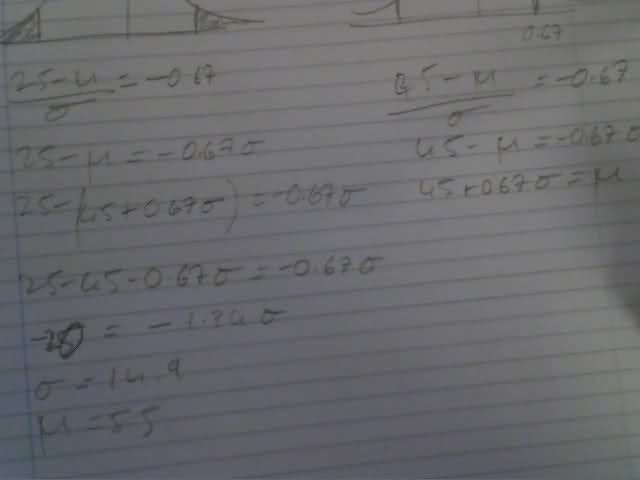 0.67
25-μ/σ = -0.67
25-μ = -0.67σ
25-(45+0.67σ) = -0.67σ
25-45-0.67σ = -0.67σ
-20 = -1.34σ
σ = 14.9
μ = 55
45-μ/σ = -0.67
45-μ = -0.67σ
45+0.67σ = μ